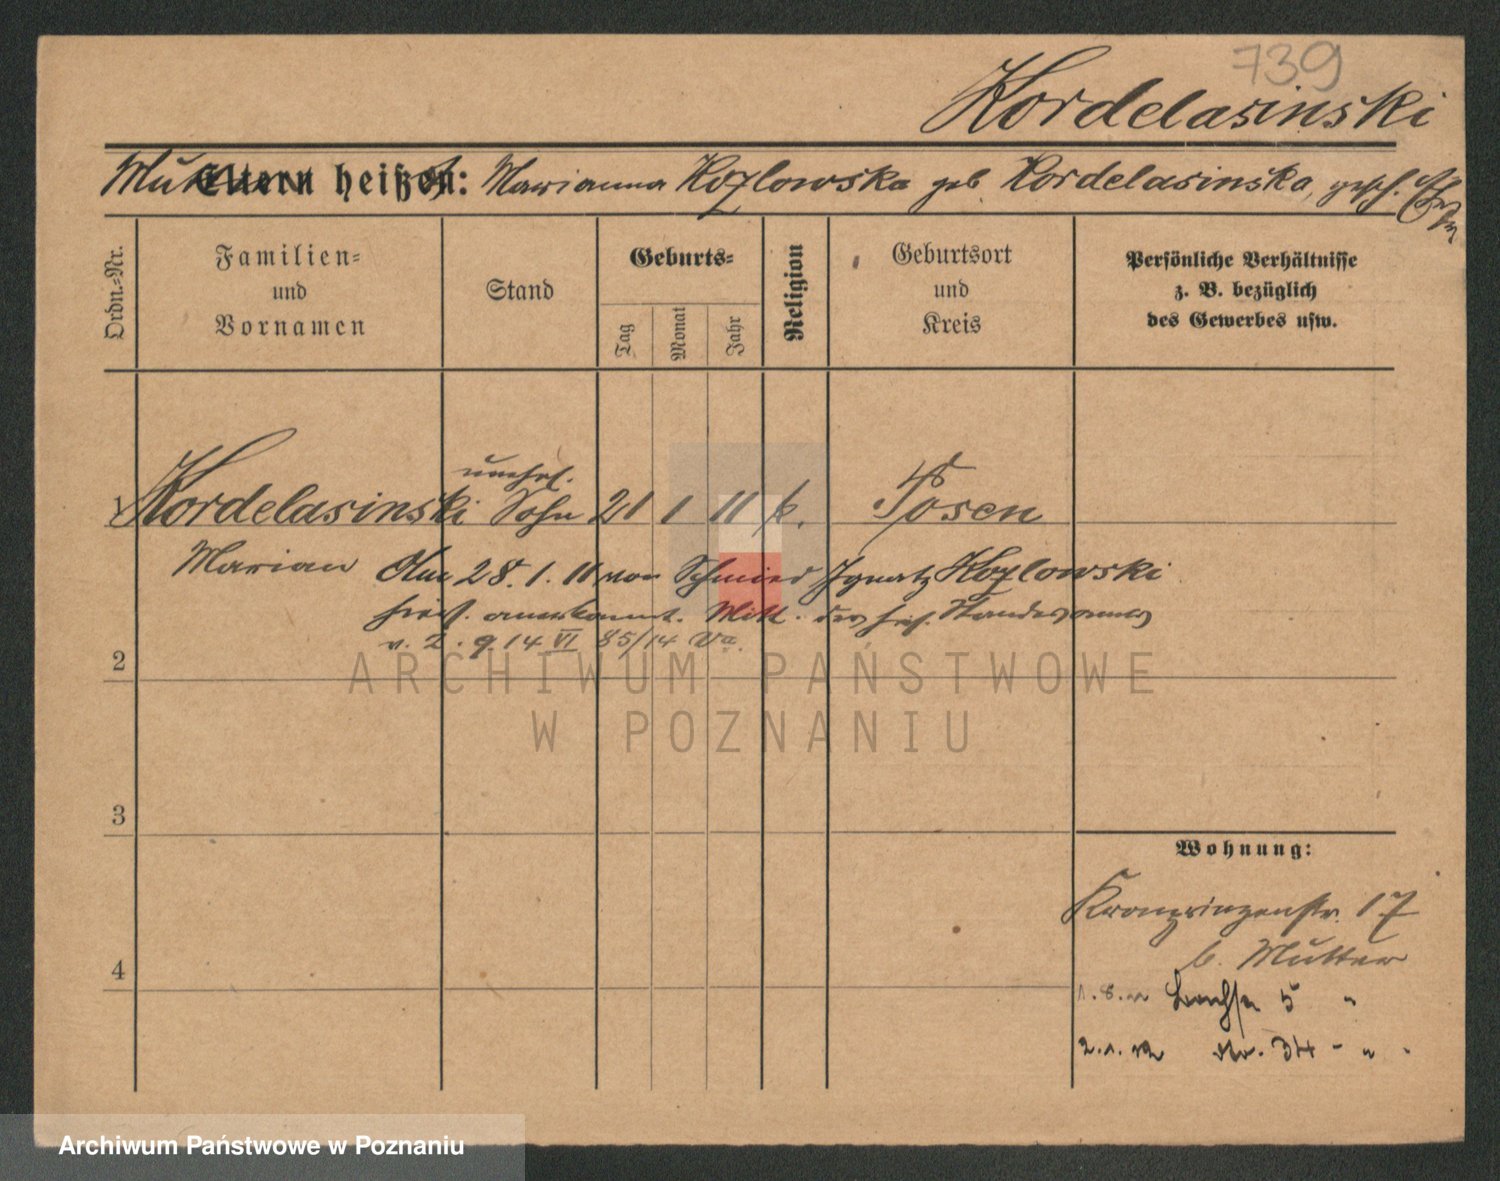 739
Kordelasinski
Mutter Eltern heißen: Marianna Kozlowska geb Kordelasinska, gesch.
Ordn.-Nr.
Familien-
und
Vornamen
Stand
Geburts-
Tag
Monat
Jahr
Religion
Geburtsort
und
Kreis
Persönliche Verhältnisse
z. B. bezüglich
des Gewerbes usw.
unehel.
1 Kordelasinski Sohn 21 1 11 k. Posen
Marian Am 28.1.11 von Schmied Ignatz Kozlowski
hies. anerkannt. Mitt. des hies. Standesamtes
v. 2.9.14 VI 85/14 Va.
2
3
4
Wohnung:
Kronprinzenstr. 17
b. Mutter
5 "
2.1.12 34 " "
ARCHIWUM PAŃSTWOWE
W POZNANIU
Archiwum Państwowe w Poznaniu